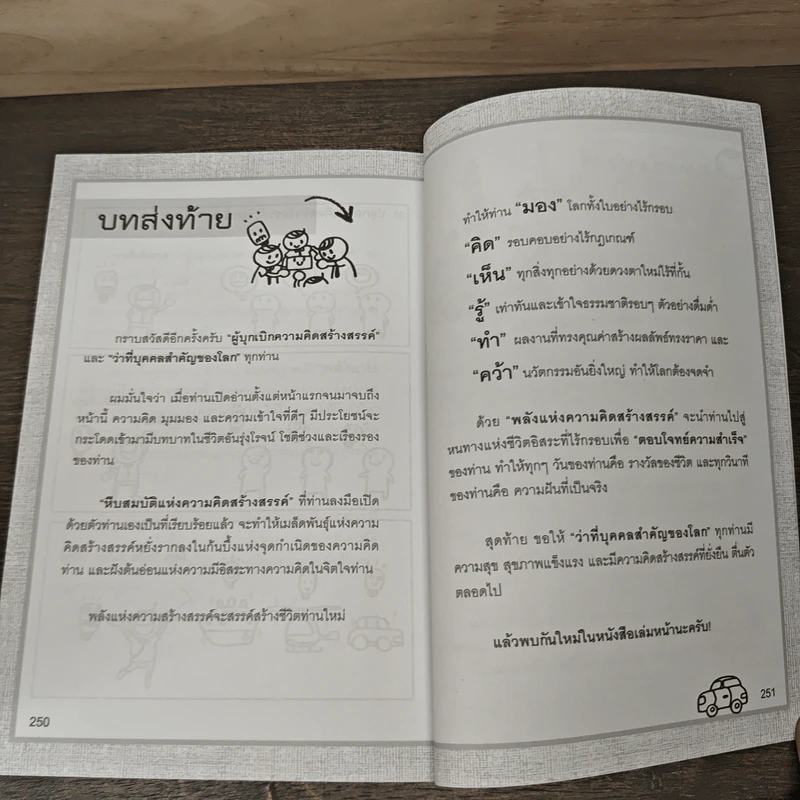 บทส่งท้าย
กราบสวัสดีอีกครั้งครับ "ผู้บุกเบิกความคิดสร้างสรรค์"
และ "ว่าที่บุคคลสำคัญของโลก" ทุกท่าน
ผมมั่นใจว่า เมื่อท่านเปิดอ่านตั้งแต่หน้าแรกจนมาจบถึง
หน้านี้ ความคิด มุมมอง และความเข้าใจที่ดีๆ มีประโยชน์จะ
กระโดดเข้ามามีบทบาทในชีวิตอันรุ่งโรจน์ โชติช่วงและเรืองรอง
ของท่าน
"หีบสมบัติแห่งความคิดสร้างสรรค์" ที่ท่านลงมือเปิด
ด้วยตัวท่านเองเป็นที่เรียบร้อยแล้ว จะทำให้เมล็ดพันธุ์แห่งความ
คิดสร้างสรรค์หยั่งรากลงในก้นบึ้งแห่งจุดกำเนิดของความคิด
ท่าน และฝังต้นอ่อนแห่งความมีอิสระทางความคิดในจิตใจท่าน
พลังแห่งความสร้างสรรค์จะสรรค์สร้างชีวิตท่านใหม่
250
ทำให้ท่าน "มอง" โลกทั้งใบอย่างไร้กรอบ
"คิด" รอบคอบอย่างไร้กฎเกณฑ์
"เห็น" ทุกสิ่งทุกอย่างด้วยดวงตาใหม่ไร้ที่กั้น
"รู้" เท่าทันและเข้าใจธรรมชาติรอบๆ ตัวอย่างดื่มด่ำ
"ทำ" ผลงานที่ทรงคุณค่าสร้างผลลัพธ์ทรงราคา และ
"คว้า" นวัตกรรมอันยิ่งใหญ่ ทำให้โลกต้องจดจำ
ด้วย "พลังแห่งความคิดสร้างสรรค์" จะนำท่านไปสู่
หนทางแห่งชีวิตอิสระที่ไร้กรอบเพื่อ "ตอบโจทย์ความสำเร็จ"
ของท่าน ทำให้ทุกๆ วันของท่านคือ รางวัลของชีวิต และทุกวินาที
ของท่านคือ ความฝันที่เป็นจริง
สุดท้าย ขอให้ "ว่าที่บุคคลสำคัญของโลก" ทุกท่านมี
ความสุข สุขภาพแข็งแรง และมีความคิดสร้างสรรค์ที่ยั่งยืน ตื่นตัว
ตลอดไป
แล้วพบกันใหม่ในหนังสือเล่มหน้านะครับ!
251